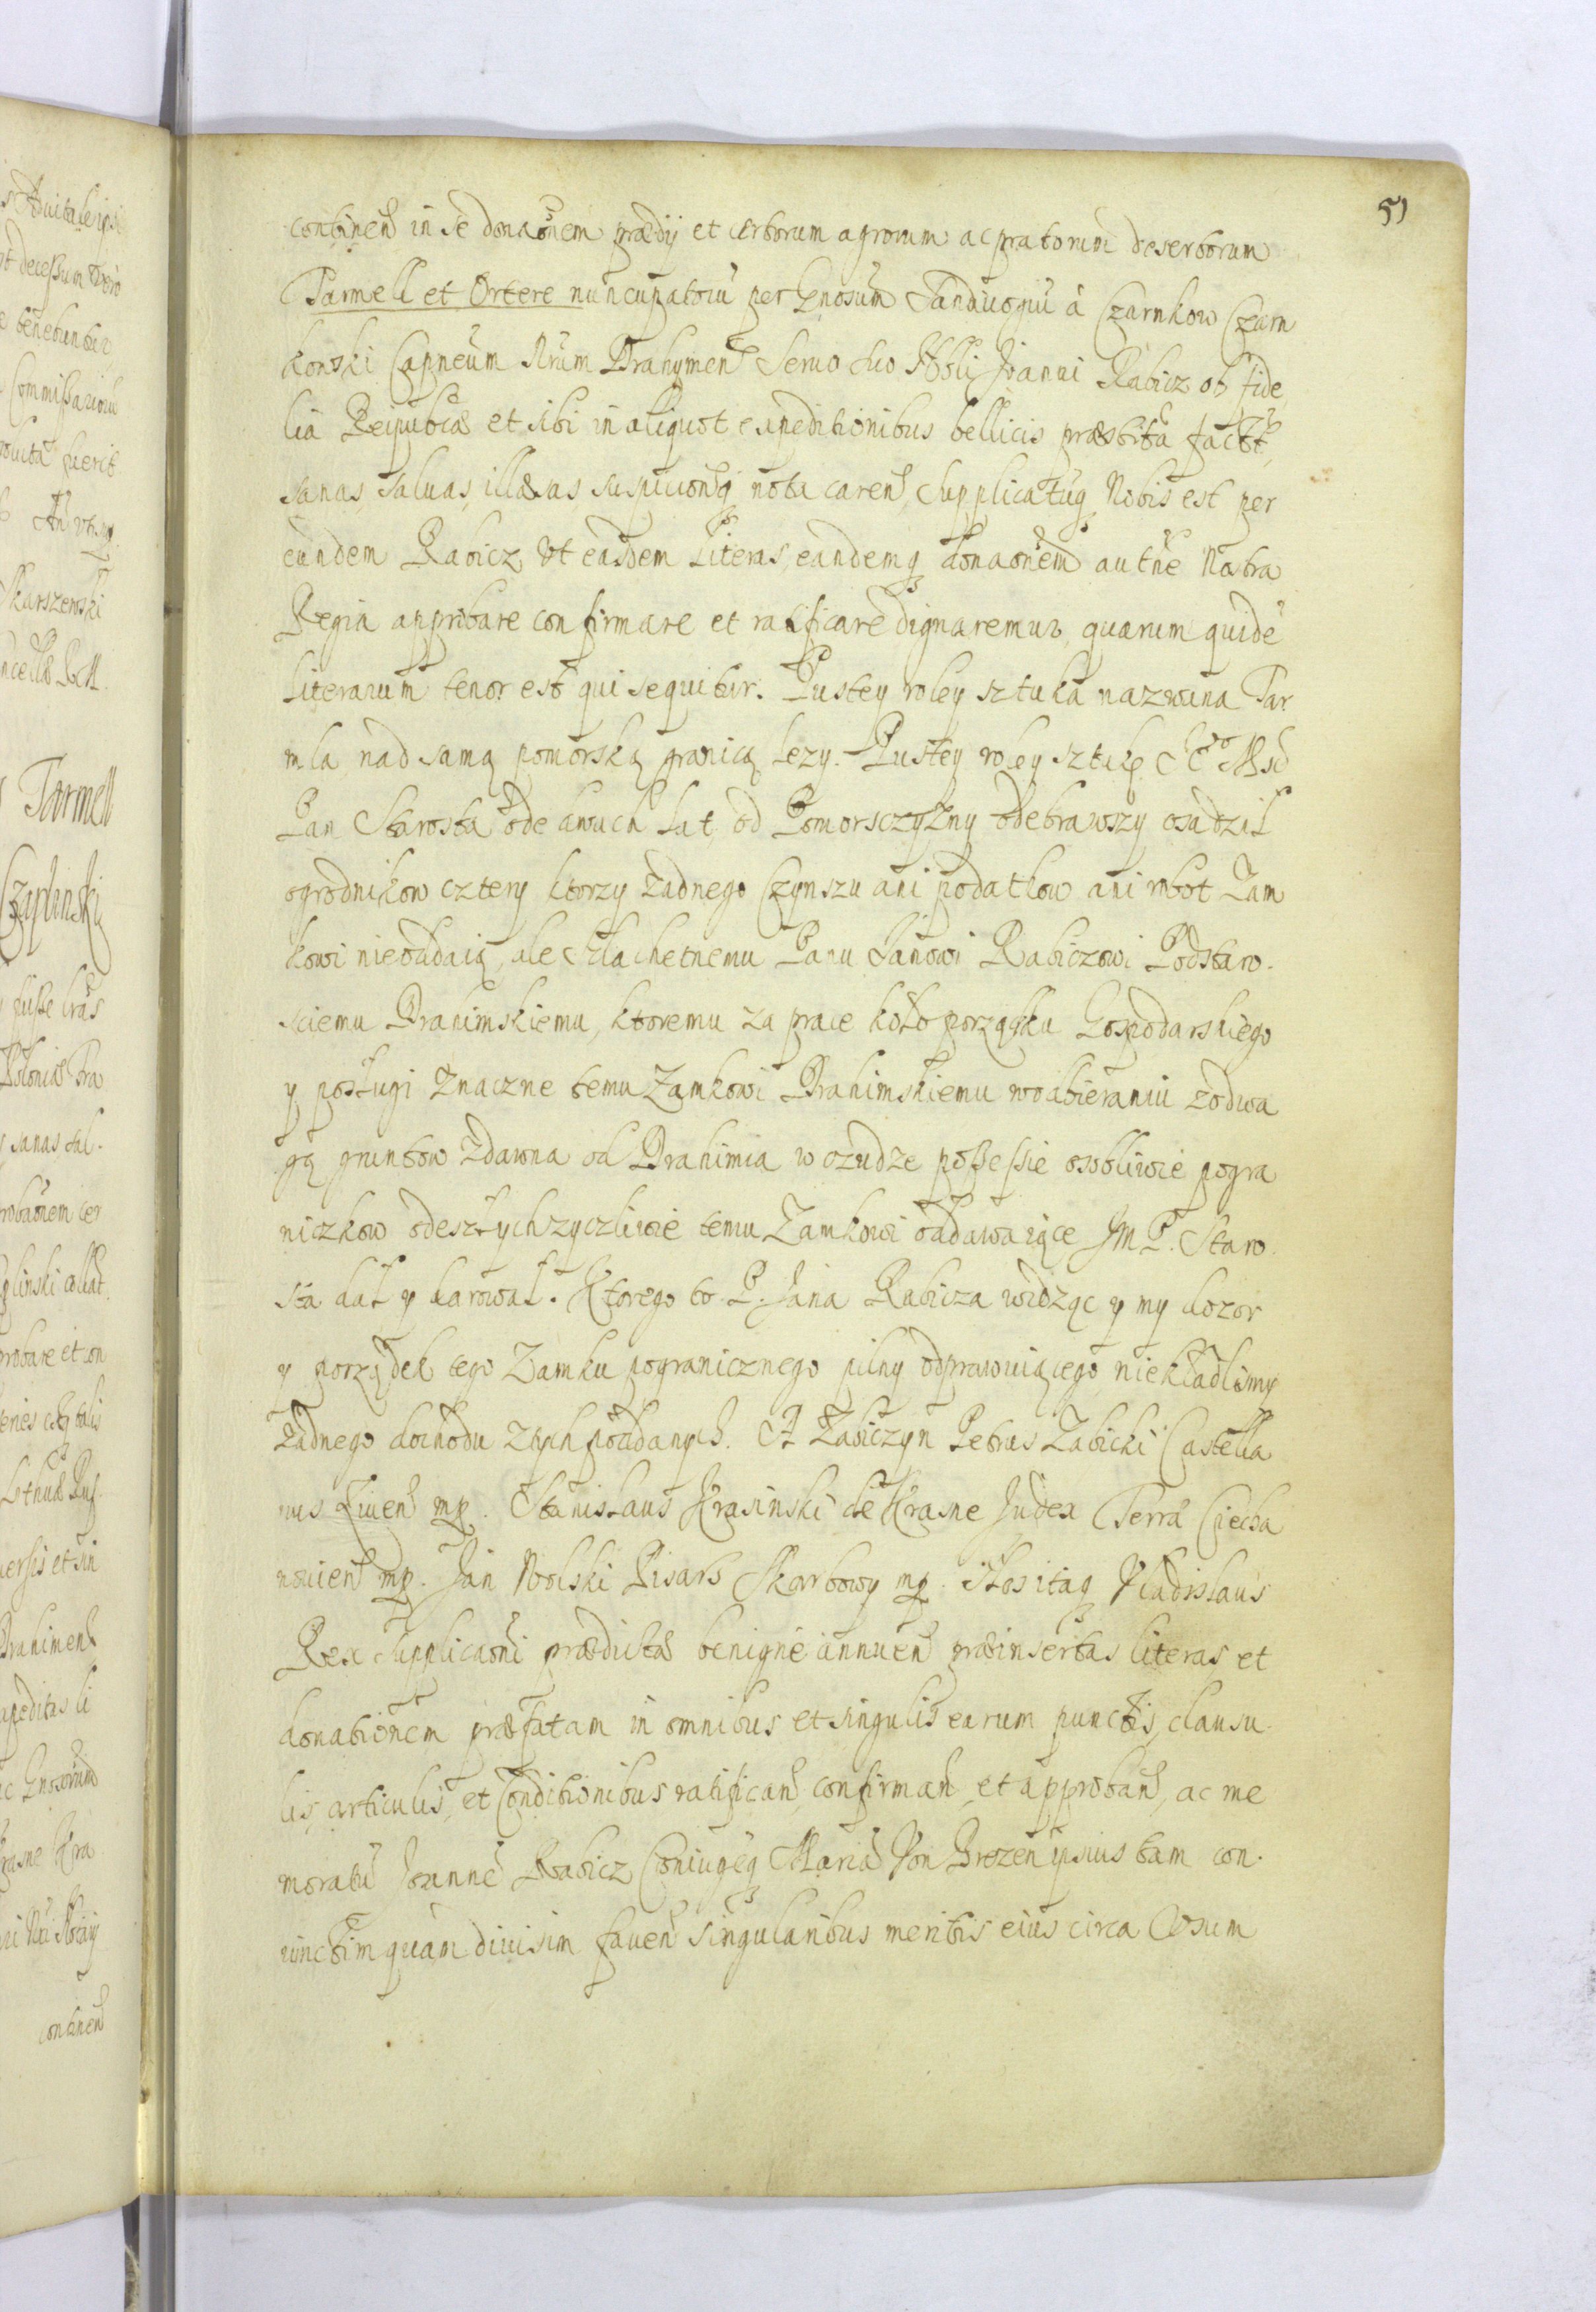 51
continen in se donaonem prædij et certorum agrorum ac pratorum desertorum
Tarmell et Ortere nuncupatorũ per Gnosum Sandiuogiũ à Czarnkow Czarn
kowski Capneum Nrum Drahymen Seruo suo Nobli Joanni Rabicz ob fide
lia Reipubcæ et sibi in aliquot expeditionibus bellicis præstita
sanas saluas, illæsas, suspicionisq nota caren, Supplicatũq Nobis est per
eundem Rabicz Vt easdem Literas, eandemq donaonem autne Nostra
Regia approbare confirmare et ratificare dignaremur, quarum quidẽ
Literarum tenor est qui sequitur. Pustey roley sztuka nazwana Tar
mla nad samą pomorską granicą lezy. Pustey roley sztukę
Pan Starosta ode dwuch lat od Pomorsczyzny odebrawszy osadził
ogrodnikow cztery ktorzy żadnego Czynszu ani podatkow ani robot Zam
kowi nieoddaią, ale Szlachetnemu Panu Janowi Rabiczowi Podstaro.
sciemu Drahimskiemu, ktoremu za prace koło porządku Gospodarskiego
y posługi znaczne temu Zamkowi Drahimskiemu w odbieraniu z odwa
gą gruntow zdawna od Drahimia w cudze possessie osobliwie pogra
niczkow odeszłych zyczliwie temu Zamkowi oddawaiące Jm P. Staro
sta dał y darował. Ktorego to P. Jana Rabicza widząc y my dozor
y porządek tego Zamku pogranicznego pilny odprawuiącego, niekładlismy
żadnego dochodu z tych poddanych. A Zabiczyn Petrus Zabicki Castella
nus mp. Stanislaus Krasinski de Krasne Judex Terræ Ciecha
nouien mp. Jan Wolski Pisarz Skarbowy mp. Nos itaq Vladislaus
Rex Supplicaoni prædictæ benigne annuen præinsertas literas et
donationem præfatam in omnibus et singulis earum punctis, clausu.
lis, articulis, et Conditionibus ratifican, confirman, et approban, ac me
moratũ Joannẽ Rabicz Coniugẽq Mariã Von Brozen ipsius tam con.
iunctim quam diuisim fauen singularibus meritis eius circa Vsum